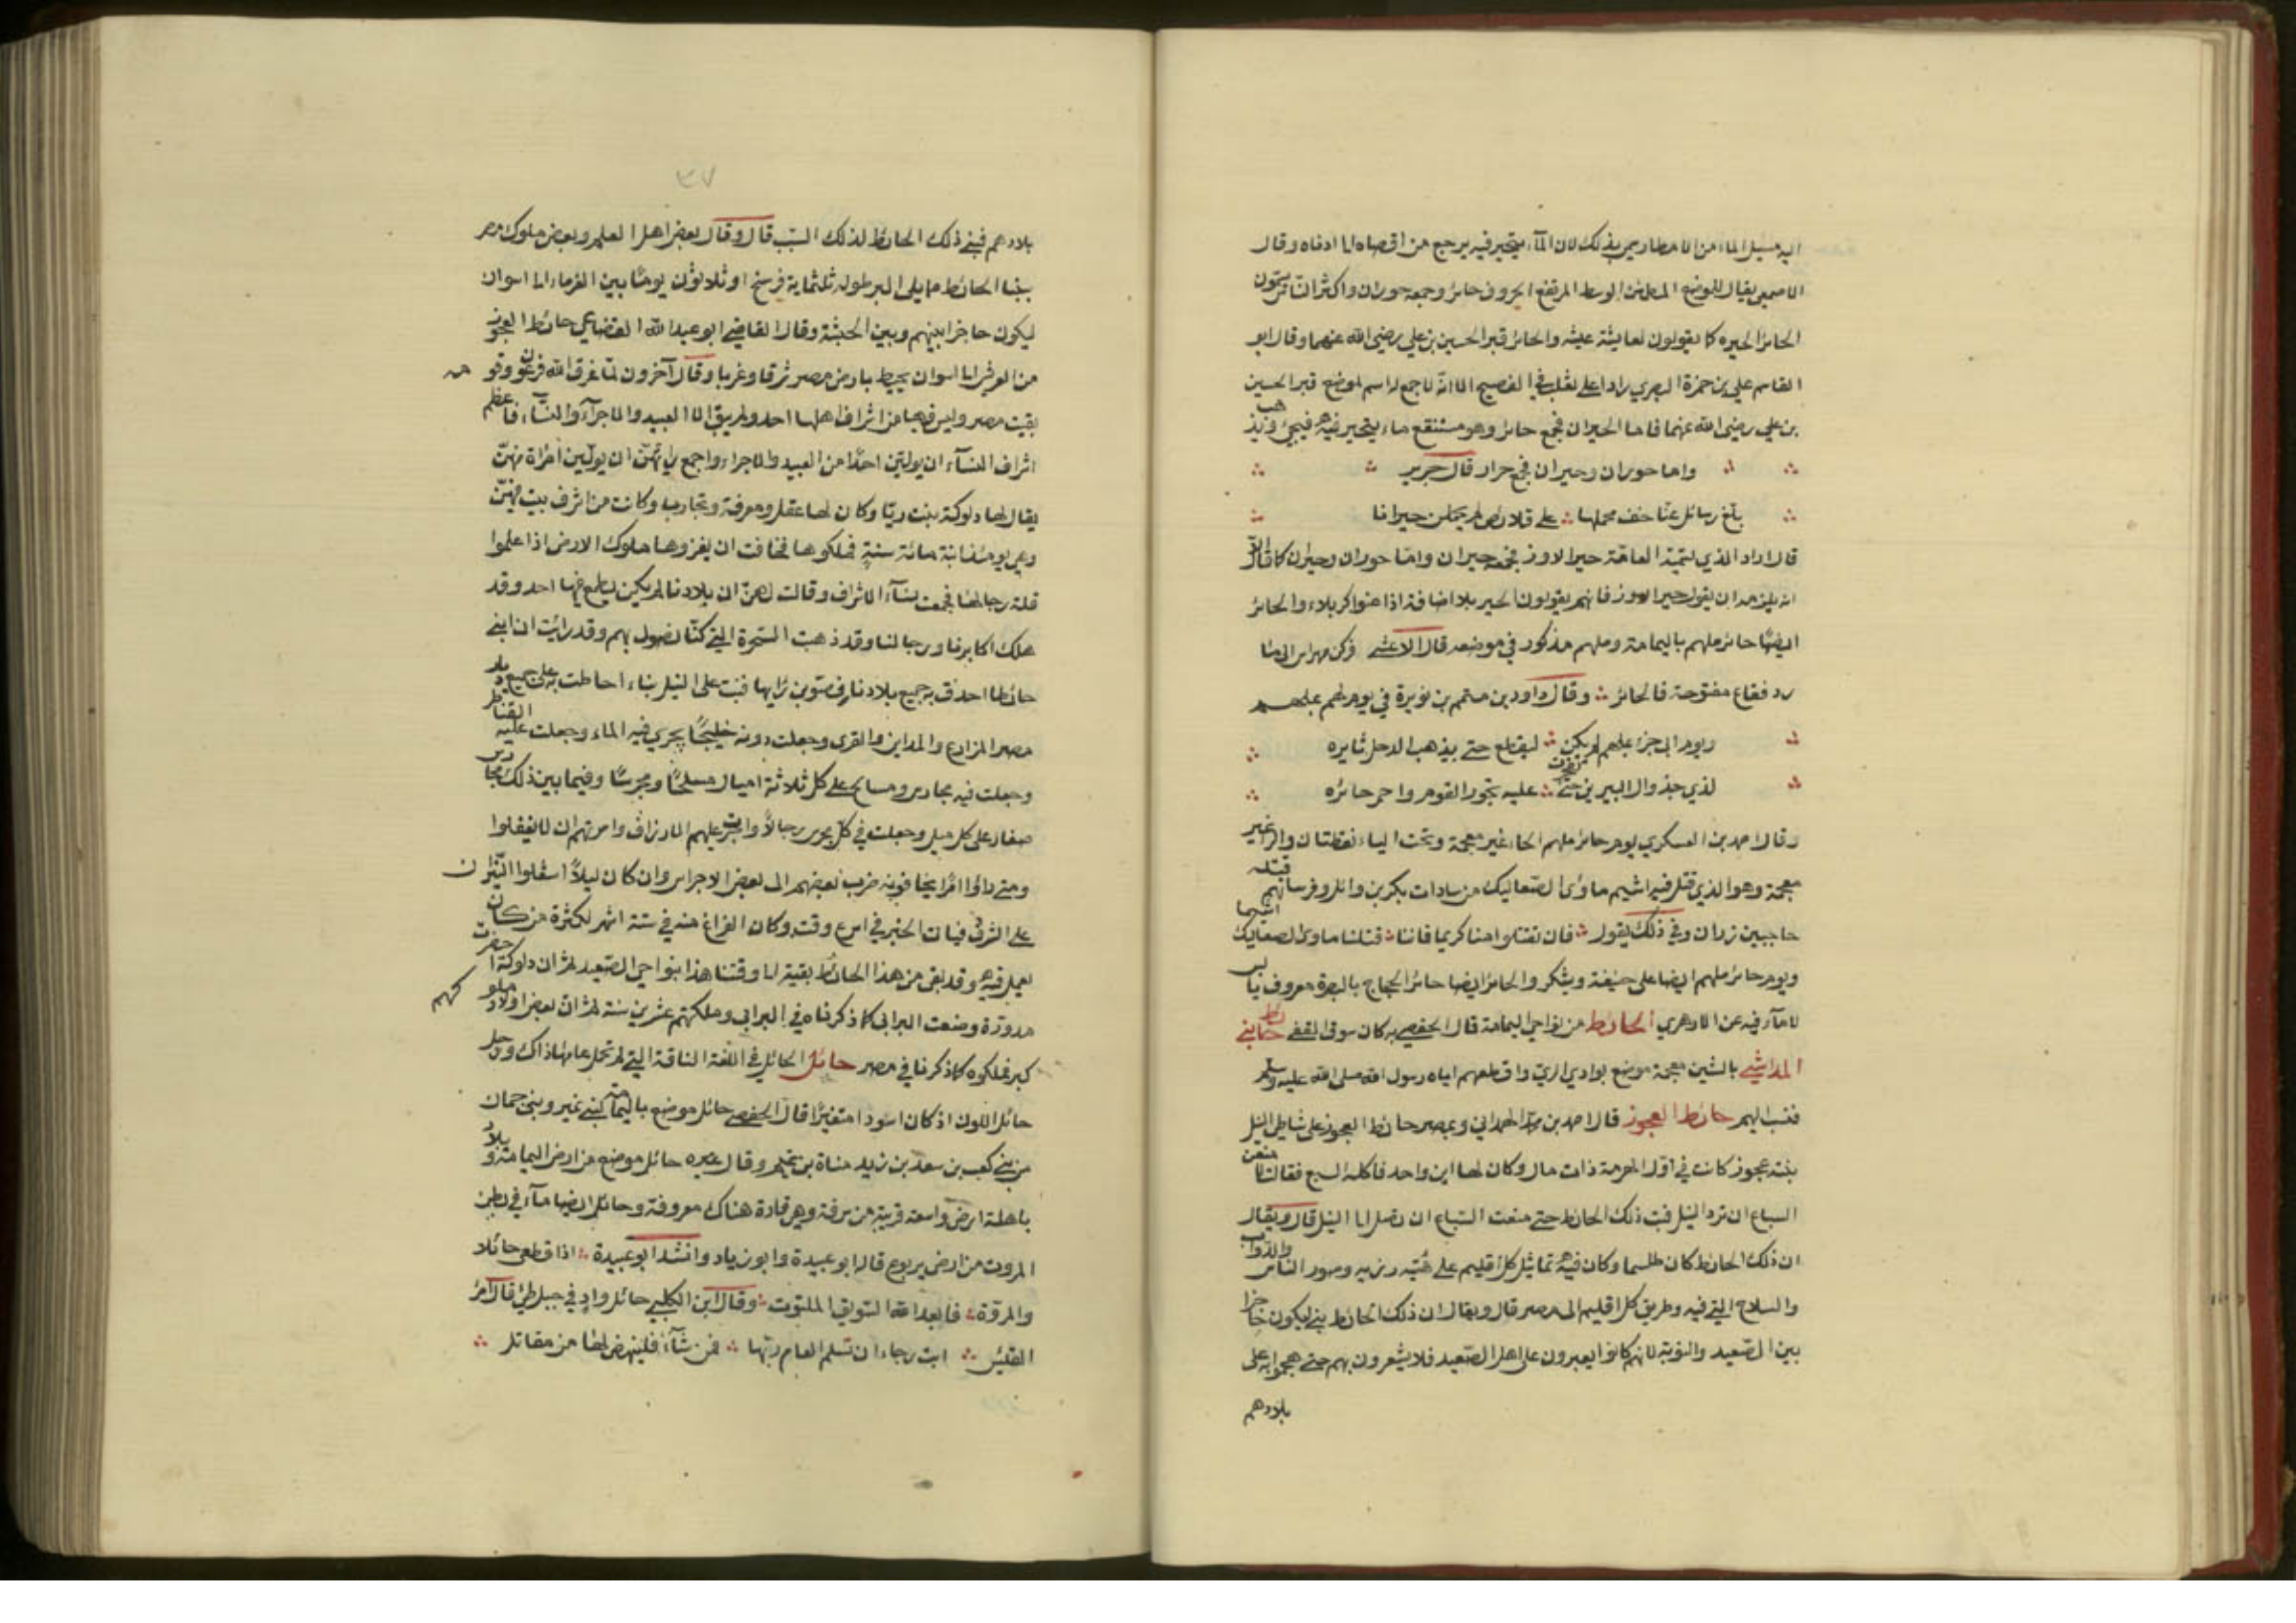 اليه مسيل الماء من الامطار يسمى بذلك لان المآء يتحير فيه يرجع من اقصاه الى ادناه وقال
الاصمعي يقال للموضع المطمئن الوسط المرتفع الحروف حائر وجمعه حوران واكثر الناس يسمون
الحائر الحيره كما يقولون لعايشة عيشه والحائر قبر الحسين بن علي رضي الله عنهما وقال ابو
القاسم علي بن حمزة البصري رادا على ثعلب في الفصيح الا انه لا جمع له اسم لموضع قبر الحسين
بن علي رضى الله عنهما فاما الحيران فجمع حائر وهو مستنقع ماء يتحير فيه فيجئ ويذهب
واما حوران وحيران فجمع حوار قال جرير
بلغ رسائل عنا خف محملها على قلائص لم يحملن حيرانا
قال اراد الذي تسميه العامة حير الاوز فجمعه حيران واما حوران وحيران كما قال الا
انه يلزمه ان يقول حير الاوز فانهم يقولون الحير بلا اضافة اذا عنوا كربلاء والحائر
ايضا حائر ملهم باليمامة وملهم مذكور في موضعه قال الاعشى فركن مهراس الى مارد
رد فقاع منفوحة فالحائر وقال داود بن متمم بن نويرة في يوم لهم بملهم
ويوم ابى جزء بملهم لم يكن ليقطع حتى يذهب الذحل ثايره
لدي جدول البيرين حتى تفجرت عليه نحور القوم واحمر حائره
وقال احمد بن العسكري يوم حائر ملهم الحاء غير معجمة وتحت الياء نقطتان والراء غير
معجمة وهو الذي قتل فيه اشيم ماوى الصعاليك من سادات بكر بن وائل وفرسانهم قتله
حاجب بن زرارن وفي ذلك يقول فان تقتلوا منا كريما فاننا قتلنا ماوى الصعاليك اشيما
ويوم حائر ملهم ايضا على حنيفة ويشكر والحائر ايضا حائر الحجاج بالبصرة معروف يابس
لا مآء فيه عن الازهري الحائط من نواحي اليمامة قال الحفصي به كان سوق الفقى حائط بني
المداشي بالشين معجمة موضع بوادي القرى اقطعهم اياه رسول الله صلى الله عليه وسلم
فنسب اليهم حائط العجوز قال احمد بن محمد الهمداني وبمصر حائط العجوز على شاطى النيل
بنته عجوز كانت في اول الدهر ذات مال وكان لها ابن واحد فاكله السبع فقالت لا منعن
السباع ان ترد النيل فبنت ذلك الحائط حتى منعت السباع ان تصل الى النيل قال ويقال
ان ذلك الحائط كان طلسما وكان فيه تماثيل كل اقليم على هيئته وزيه وصور الناس والدواب
والسلاح التي فيه وطريق كل اقليم الى مصر قال ويقال ان ذلك الحائط بني ليكون حاجزا
بين الصعيد والنوبة لانهم كانوا يعبرون على اهل الصعيد فلا يشعرون بهم حتى هجموا به على
بلادهم
٣٧
بلادهم فبني ذلك الحائط لذلك السبب قال وقال بعض اهل العلم وبعض ملوك مصر
بنا الحائط مما يلي البر طوله ثلثماية فرسخ او ثلاثون يوما بين الفرماء الى اسوان
ليكون حاجزا بينهم وبين الحبشة وقال القاضي ابو عبد الله القضاعي حائط العجوز
من العريش الى اسوان يحيط بارض مصر شرقا وغربا وقال آخرون لما غرق الله فرعون وقومه
بقيت مصر وليس فيها من اشراف اهلها احد ولم يبق الا العبيد والاجرآء والنسآء فاعظم
اشراف النسآء ان يولين احدا من العبيد والاجراء واجمع رايهن ان يولين امراة منهن
يقال لها دلوكة بنت ريا وكان لها عقل ومعرفة وتجارب وكانت من اشرف بيت منهن
وهي يومئذ ابنة مائة سنة فملكوها فخافت ان يغزوها ملوك الارض اذا علموا
قلة رجالها فجمعت نسآء الاشراف وقالت لهن ان بلادنا لم يكن يطمع فيها احد وقد
هلك اكابرنا ورجالنا وقد ذهبت السحرة التي كنا نصول بهم وقد رايت ان ابني
حائطا احدق به جميع بلادنا فصوبن رايها فبنت على النيل بناء احاطت به على جميع ديار
مصر المزارع والمداين والقرى وجعلت دونه خليجا يجري فيه الماء وجعلت عليه القناطر
وجعلت فيه محارس ومسالح على كل ثلاثة اميال مسلحا ومحرسا وفيما بين ذلك محارس
صغار على كل ميل وجعلت في كل محرس رجالا واجرت عليهم الارزاق وامرتهم ان لا يغفلوا
ومتى راوا امرا يخافونه ضرب بعضهم الى بعض الاجراس وان كان ليلا اشعلوا النيران
على الشرف فياتى الخبر في اسرع وقت وكان الفراغ منه في ستة اشهر لكثرة من كان
يعمل فيه وقد بقى من هذا الحائط بقية الى وقتنا هذا بنواحي الصعيد ثم ان دلوكة احضرت
تدورة وصنعت البرابي كما ذكرناه في البرابي وملكتهم عشرين سنة ثم ان بعض اولاد ملوكهم
كبر فملكوه كما ذكرنا في مصر حائل الحائل في اللغة الناقة التي لم تحمل عامها ذاك ورجل
حائل اللون اذ كان اسودا متغيرا قال الحفصي حائل موضع باليمامة لبني نمير وبني حمان
من بني كعب بن سعد بن زيد مناة بن تميم وقال غيره حائل موضع من ارض اليمامة وبلاد
باهلة ارض واسعة قريبة من سرفة وهي قادة هناك معروفة وحائل ايضا مآء في بطن
المروت من ارض يربوع قاله ابو عبيدة وابو زياد وانشد ابو عبيدة اذا قطعن حائلا
والمروت فابعد الله السويق الملتوت وقال ابن الكلبي حائل واد في جبلي طي قال امرئ
القيس ابت رجاء ان تسلم العام ربها فمن شآء فلينهض لها من مقاتل